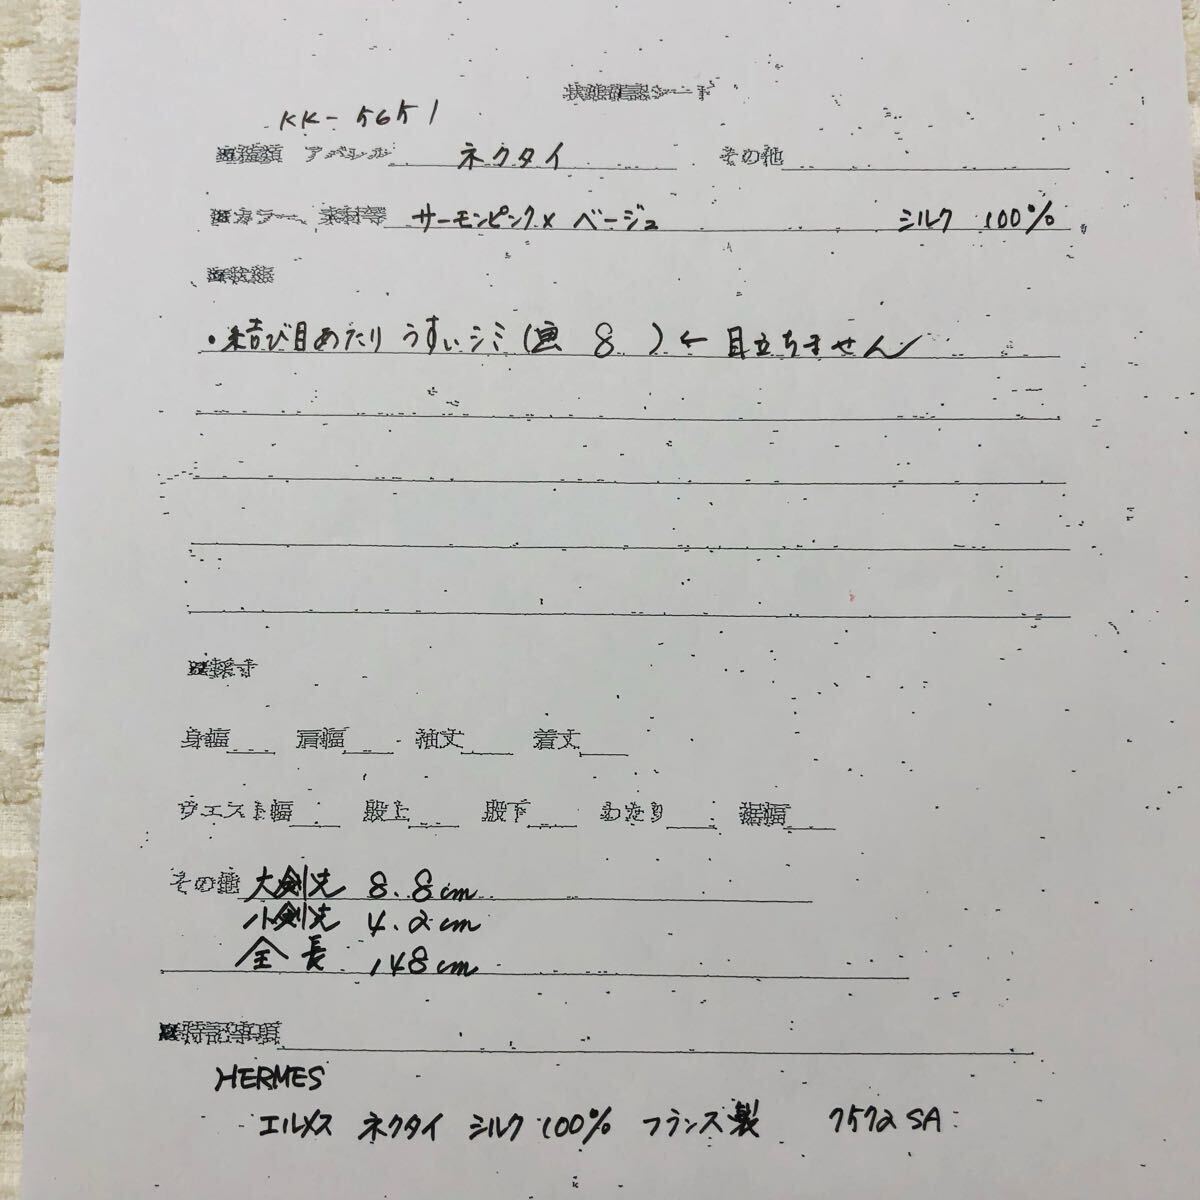 状態確認シート
KK-5651
■種類 アパレル ネクタイ その他
■カラー、素材等 サーモンピンク× ベージュ シルク 100%
■状態
・結び目あたり うすいシミ(画 8 )← 目立ちません
■採寸
身幅 肩幅 袖丈 着丈
ウエスト幅 股上 股下 わたり 裾幅
その他 大剣先 8.8cm
小剣先 4.2cm
全長 148cm
■特記事項
HERMES
エルメス ネクタイ シルク 100% フランス製 7572 SA